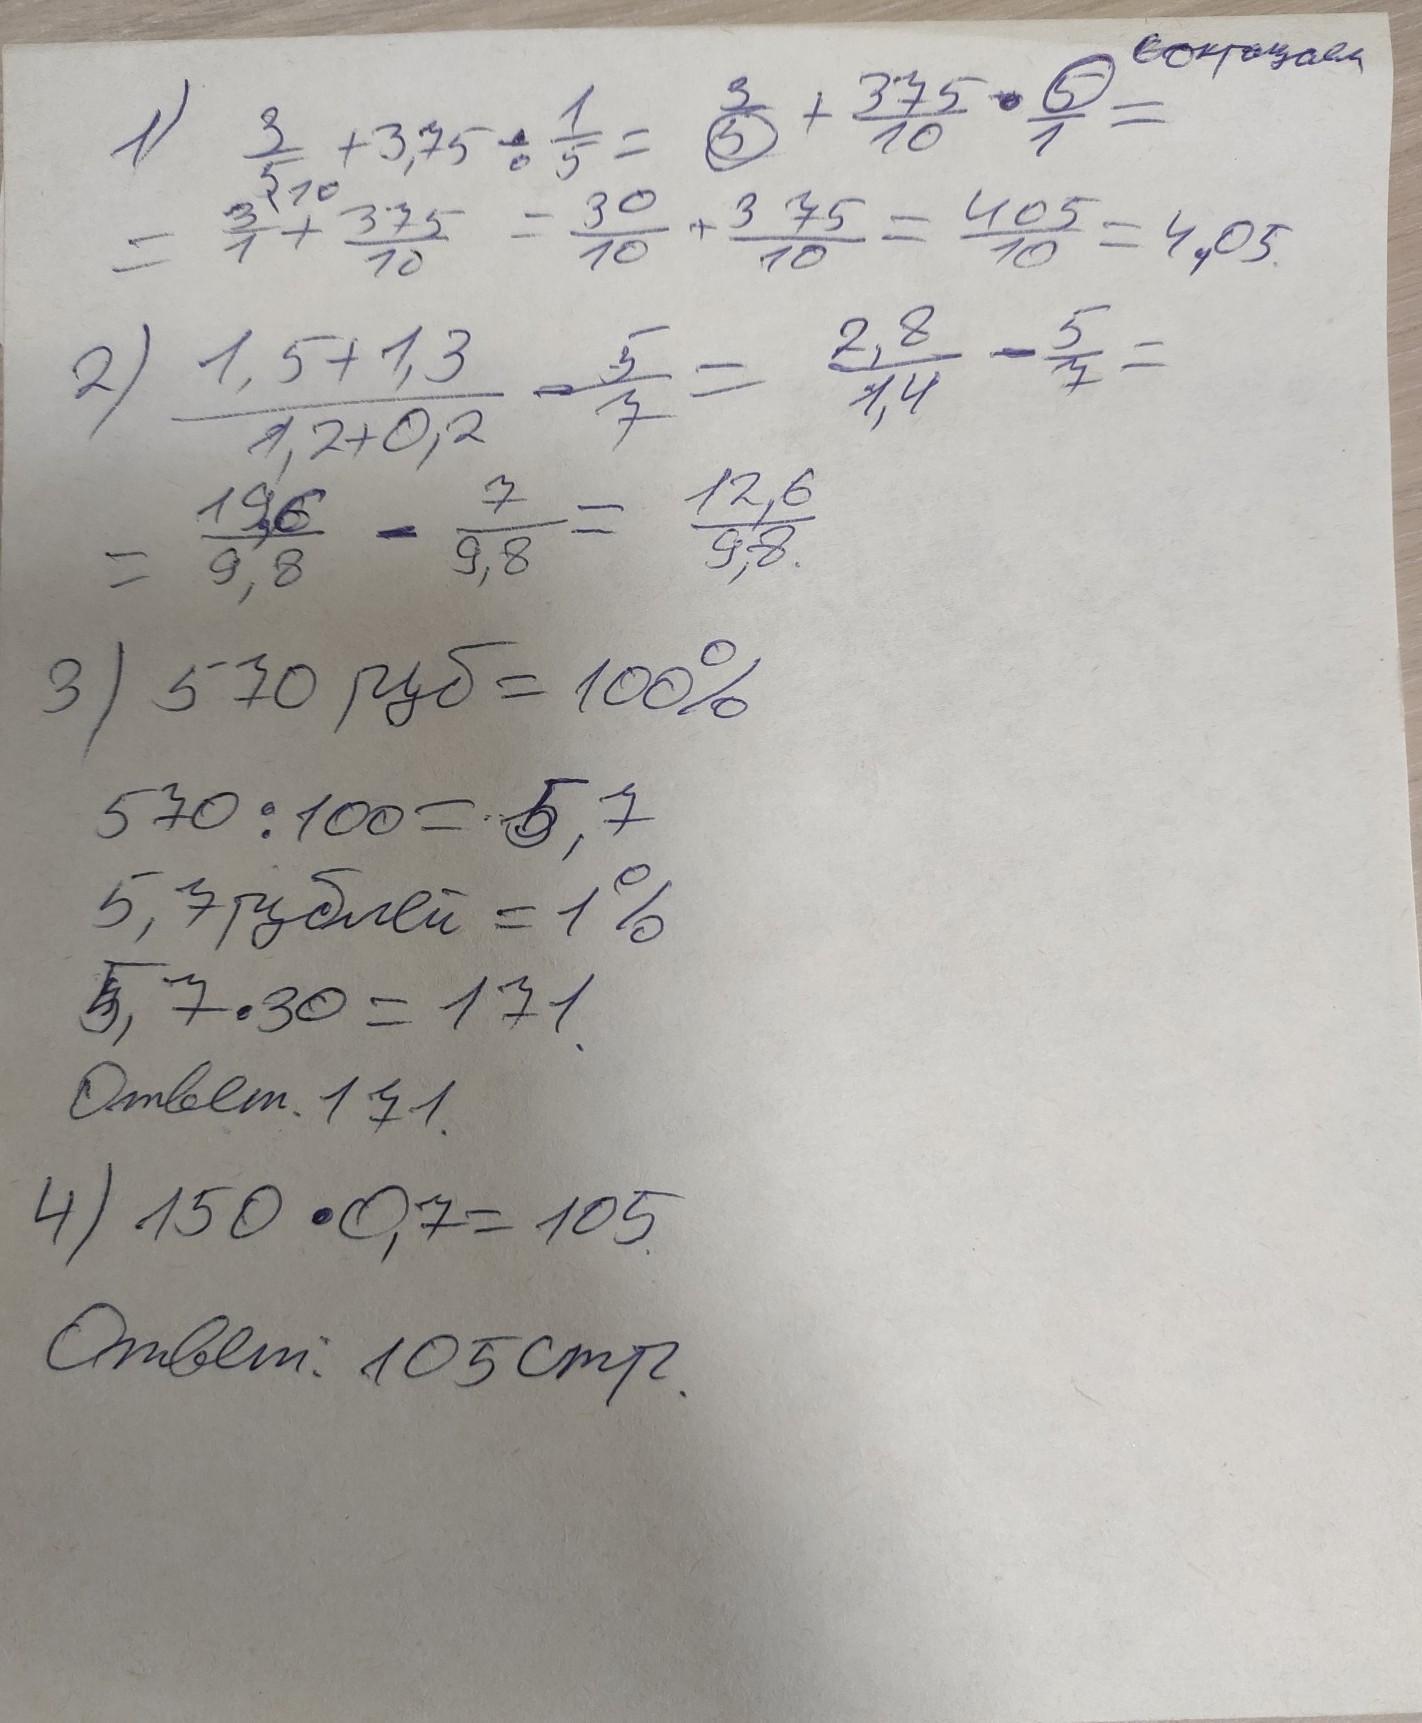 сокращаем
1) 3/5 + 3,75 ÷ 1/5 = 3/5 + 375/10 • 5/1 =
= 3/1 \10 + 375/10 = 30/10 + 375/10 = 405/10 = 4,05.
2) (1,5+1,3)/(1,2+0,2) - 5/7 = 2,8/1,4 - 5/7 =
= 19,6/9,8 - 7/9,8 = 12,6/9,8.
3) 570 руб = 100%
570 : 100 = 5,7
5,7 рублей = 1%
5,7 • 30 = 171.
Ответ. 171.
4) 150 • 0,7 = 105.
Ответ: 105 стр.